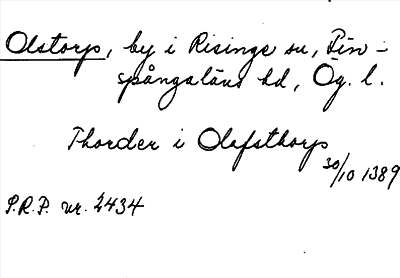 Olstorp, by i Risinge sn, Fin-
spångaläns hd, Ög. l.
Thorder i Olafsthorp
30/10 1389
S.R.P. nr. 2434